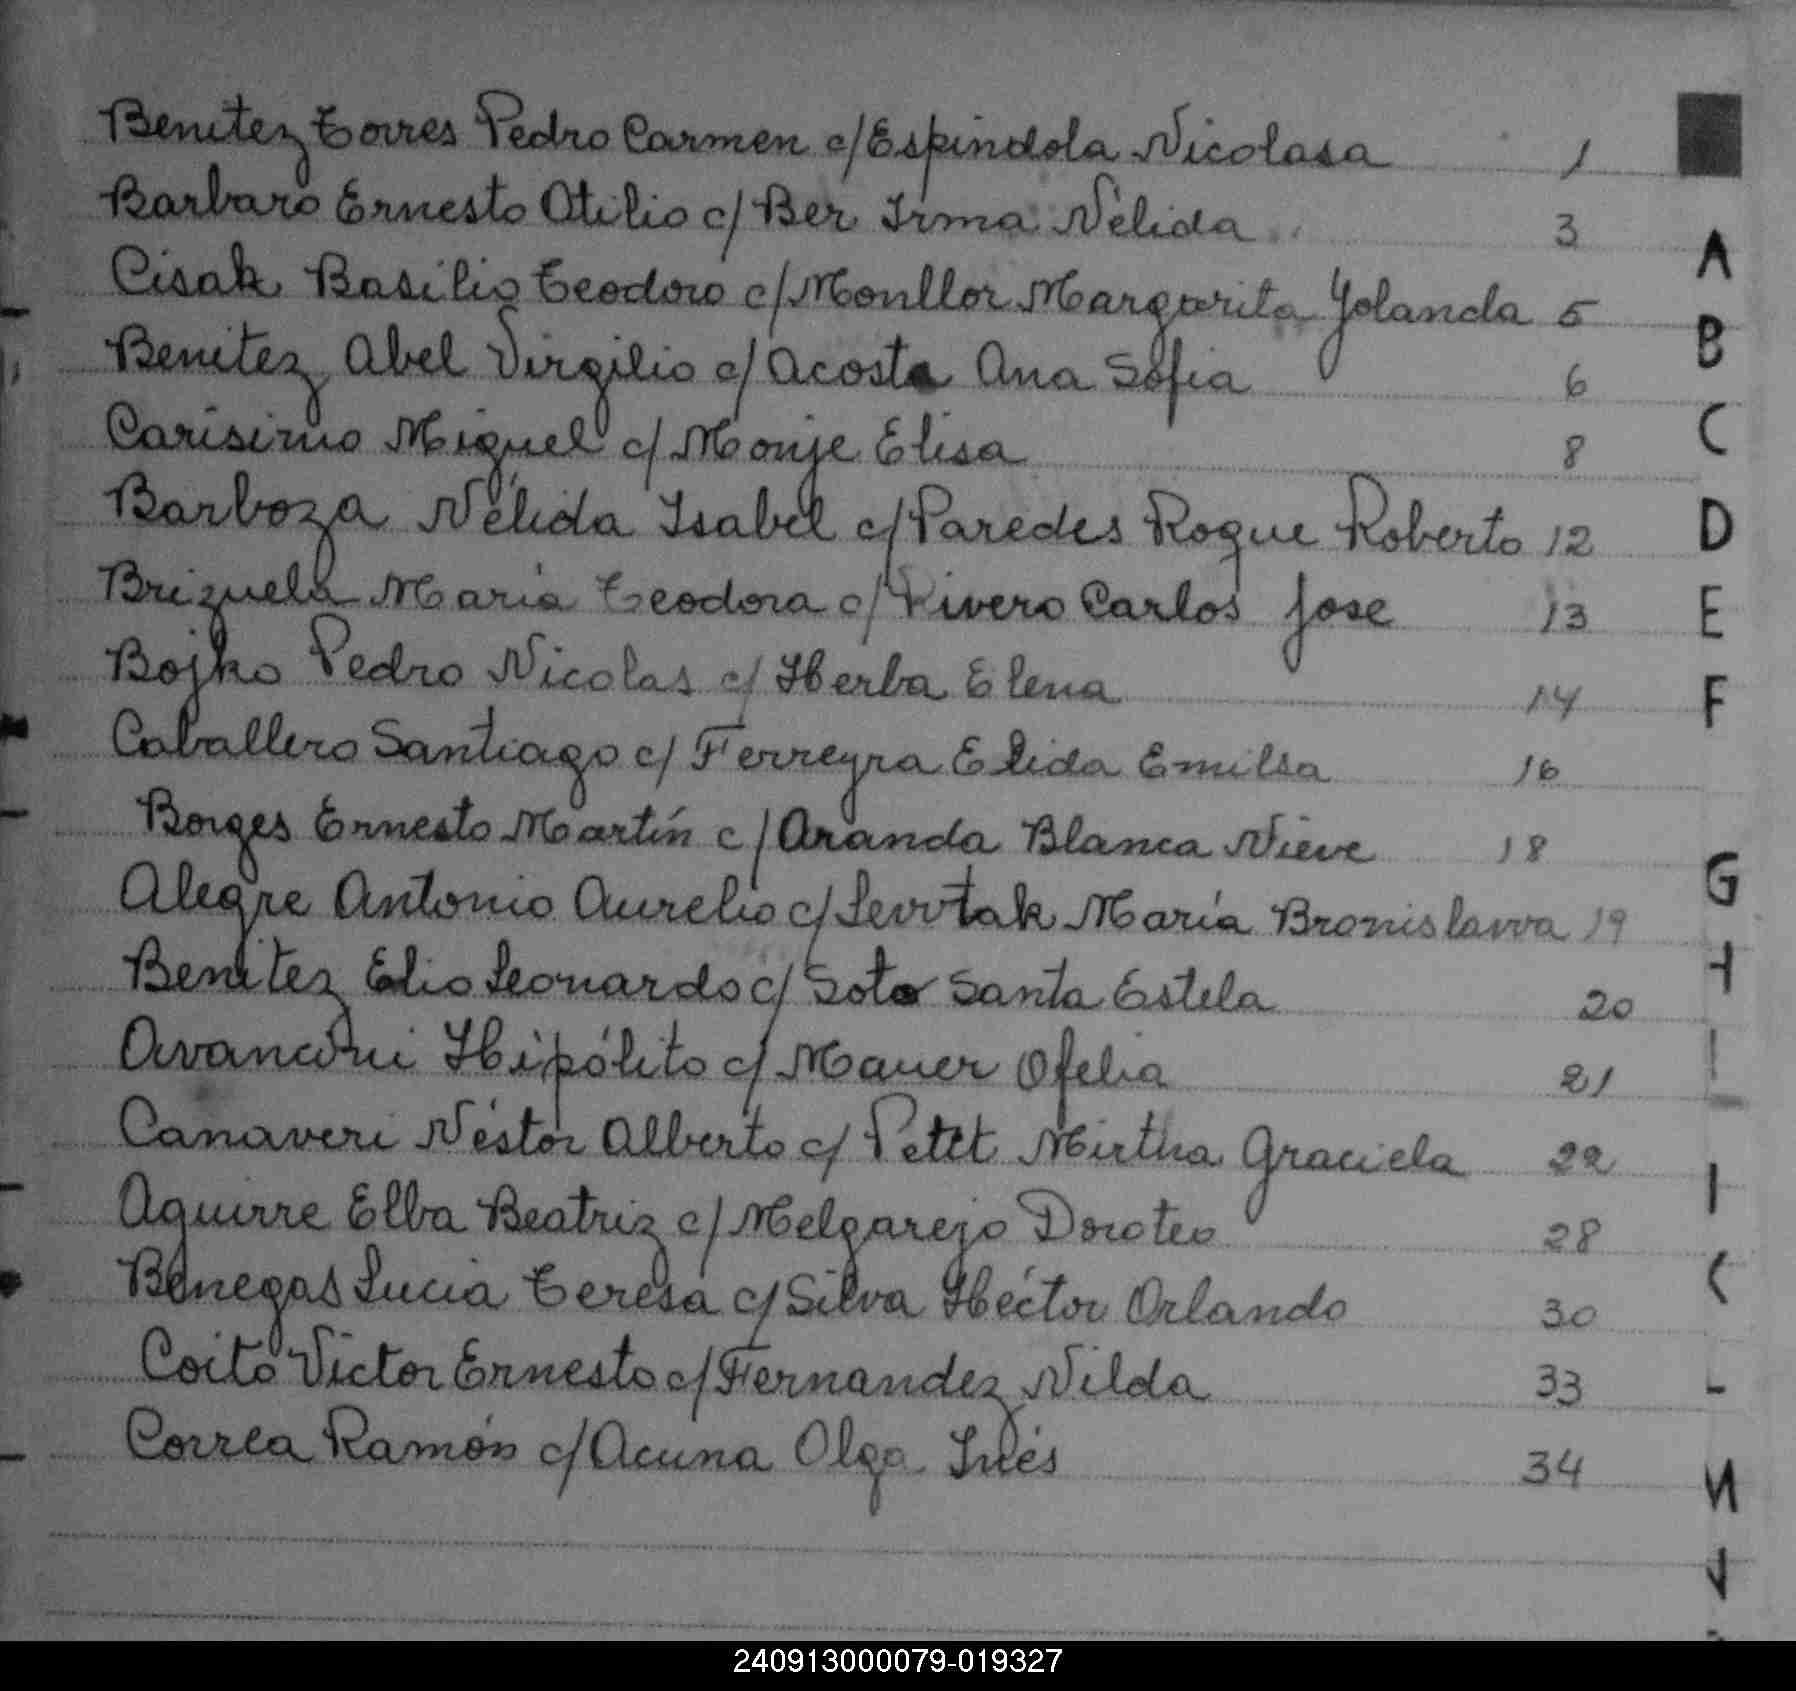 Benitez Torres Pedro Carmen c/Espindola Nicolasa 1
Barbaro Ernesto Otilio c/ Ber Irma Nélida 3
A
Cisak Basilio Teodoro c/Monllor Margarita Yolanda 5
B
Benitez Abel Virgilio c/ Acosta Ana Sofia 6
Carisimo Miguel c/ Monje Elisa 8
C
Barboza Nélida Isabel c/Paredes Roque Roberto 12
D
Brizuela María Teodora c/ Rivero Carlos Jose 13
E
Bojko Pedro Nicolas c/ Herba Elena 14
F
Caballero Santiago c/ Ferreyra Elida Emilsa 16
Borges Ernesto Martín c/ Aranda Blanca Nieve 18
G
Alegre Antonio Aurelio c/ María Bronislawa 19
Benitez Elio Leonardo c/ Soto Santa Estela 20
Hipólito c/ Mauer Ofelia 21
Canaveri Néstor Alberto c/ Petit Mirtha Graciela 22
I
Aguirre Elba Beatriz c/ Melgarejo Doroteo 28
Benegas Lucia Teresa c/ Silva Héctor Orlando 30
Coito Victor Ernesto c/Fernandez Nilda 33
Correa Ramón c/Acuna Olga Inés 34
240913000079-019327